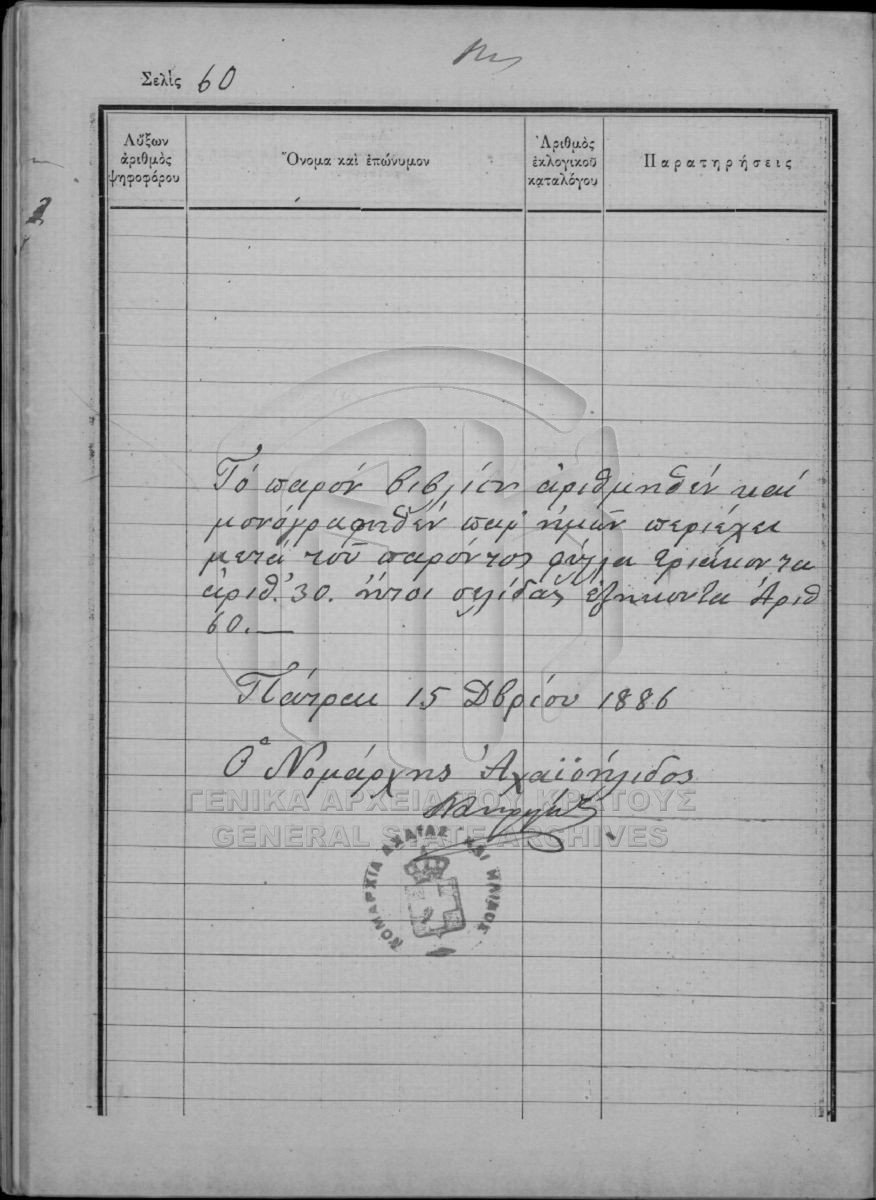 Σελὶς 60
Αὔξων
ἀριθμὸς
ψηφοφόρου
Ὄνομα καὶ ἐπώνυμον
Ἀριθμὸς
ἐκλογικοῦ
καταλόγου
Παρατηρήσεις
Τό παρόν βιβλίον ἀριθμηθέν καί
μονογραφηθέν παρ' ἡμῶν περιέχει
μετά τοῦ παρόντος φύλλα τριάκοντα
ἀριθ. 30. ἤτοι σελίδας ἑξήκοντα Ἀριθ
60.—
Πάτραι 15 Δβρίου 1886
Ὁ Νομάρχης Ἀχαϊοήλιδος
ΓΕΝΙΚΑ ΑΡΧΕΙΑ ΤΟΥ ΚΡΑΤΟΥΣ
GENERAL STATE ARCHIVES
ΝΟΜΑΡΧΙΑ ΑΧΑΪΑΣ ΚΑΙ ΗΛΙΔΟΣ